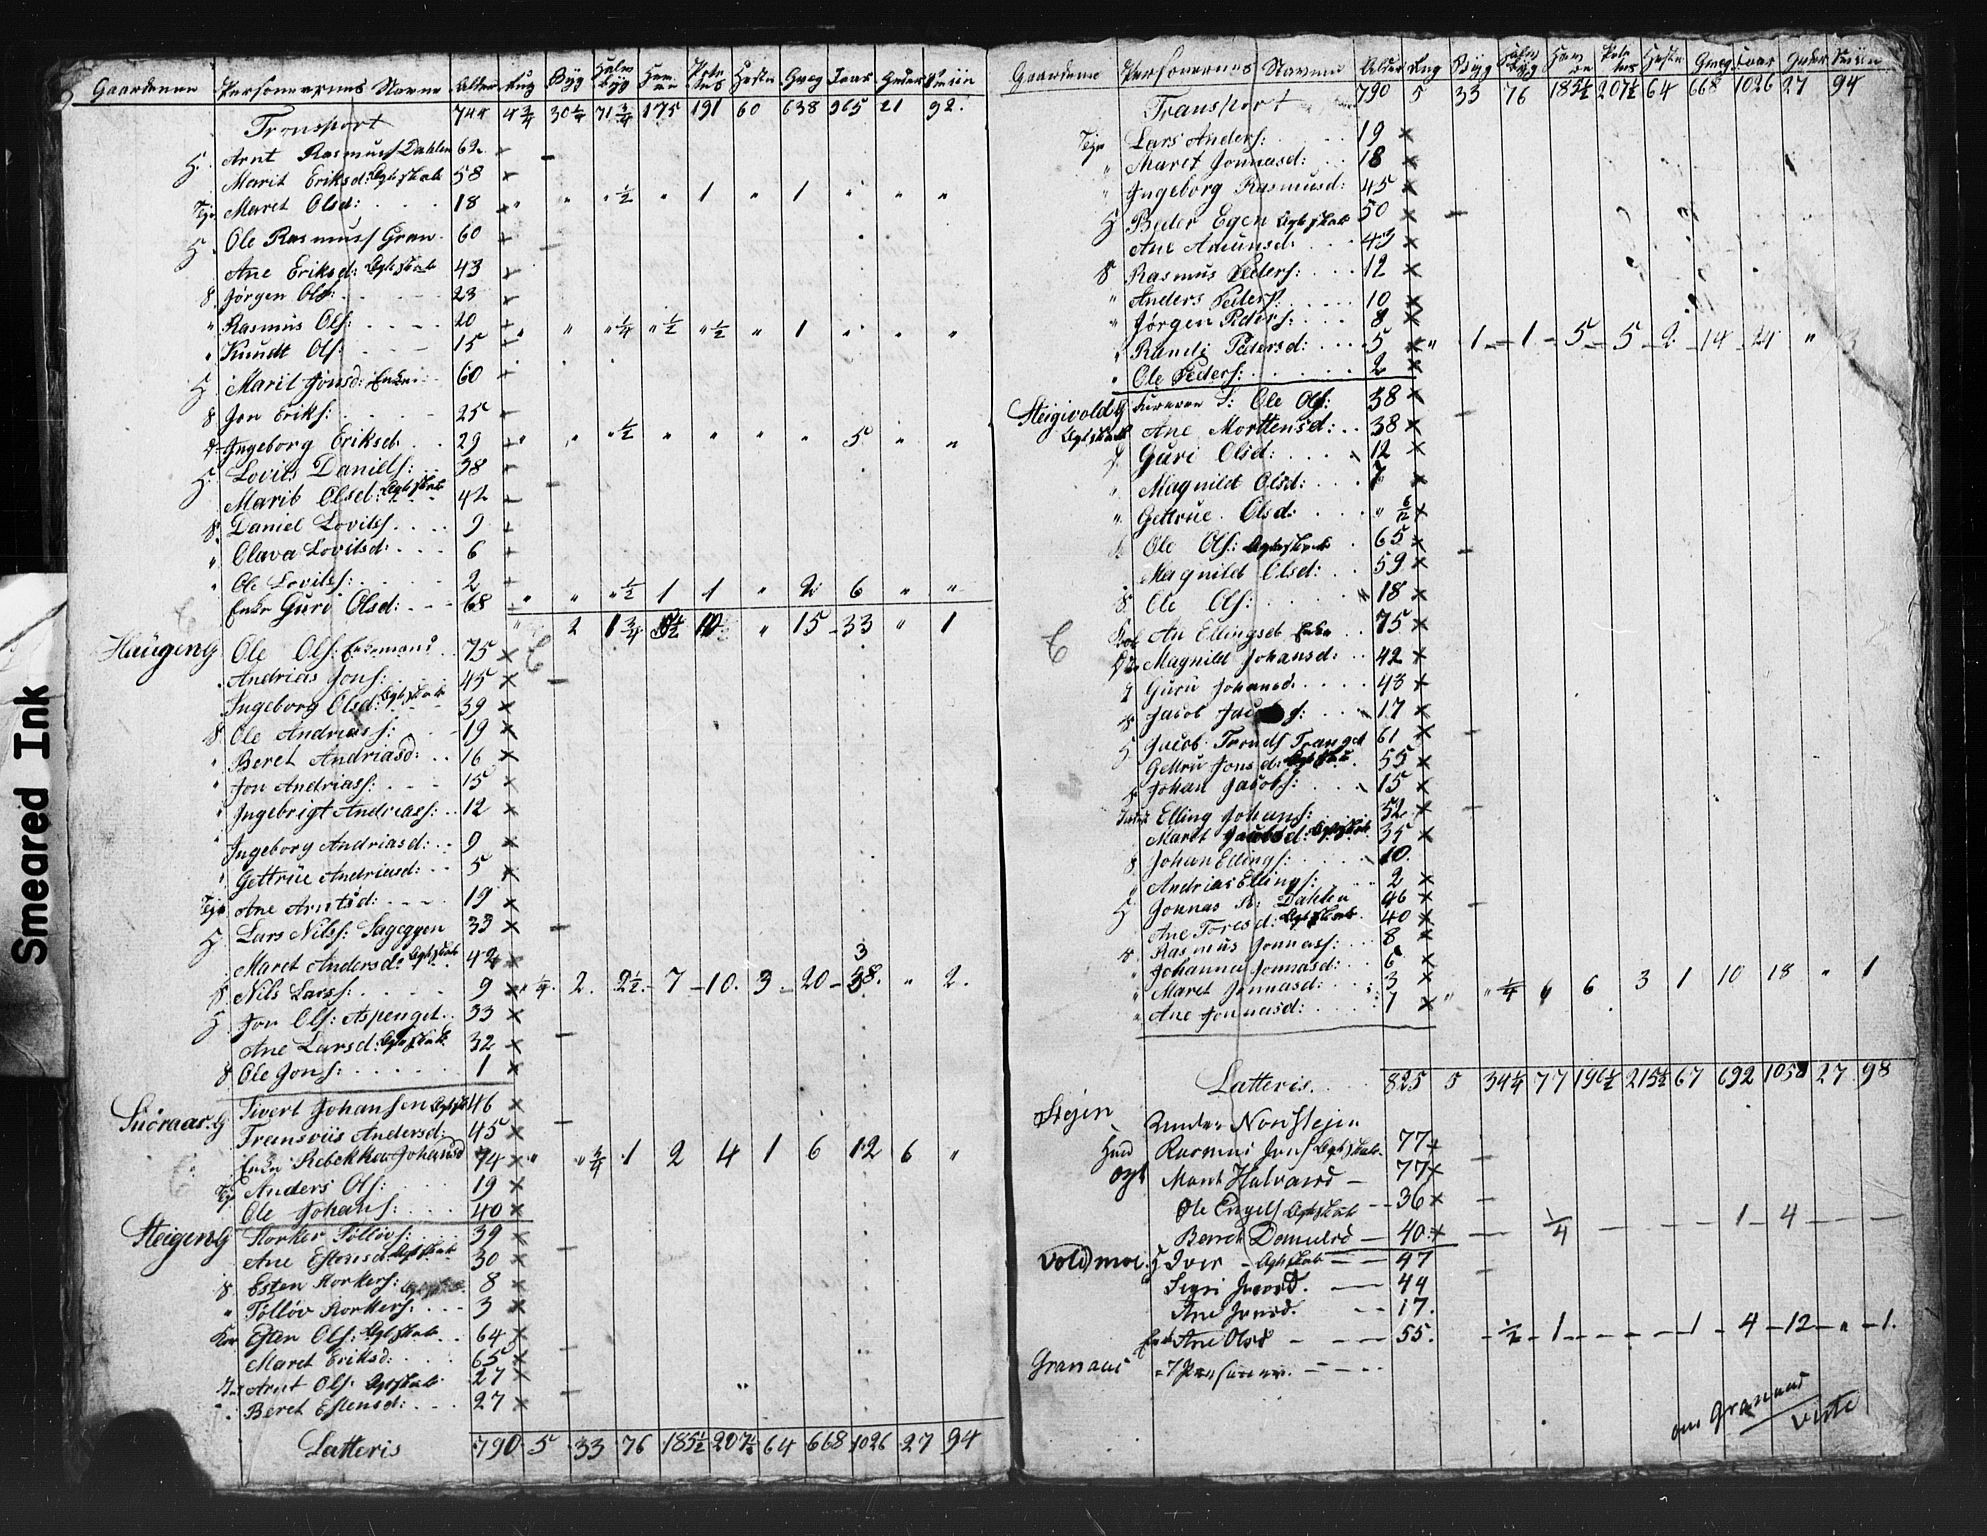 Smeared Ink
Gaardene Personernes Navne Alder Rug Byg Halv byg Havre Potetes Heste Qvæg Faar Geder Sviin
Transport 744 4¾ 30¼ 71¾ 175 191 60 638 965 21 92.
H. Arnt Rasmuss Dahlen 62
Marit Eriksd: Egteskab 58
Tj. Maret Olsd: 18 " " ½ " 1 " 1 " " "
H. Ole Rasmuss Gran 60
Ane Eriksd: Egteskab 43
S. Jørgen Ols: 23
" Rasmus Ols: 20 " " ¼ ½ ½ " 1 " " "
" Knudt Ols: 15
H. Marit Jonsd: Enke 60
S Jon Eriks: 25
D Ingeborg Eriksd. 29 " " ½ " " " " 5 " "
H Lovits Daniels: 38
Marit Olsd: Egteskab 42
S. Daniel Lovitss. 9
" Olava Lovitsd: 6
" Ole Lovitss: 2 " " ½ 1 1 " 2 6 " "
Enke Guri Olsd: 68
" 2 1¾ 5½ 10 " 15 33 " 1
Haugen G Ole Ols: Enkemand 75
Andrias Jons: 45
Ingeborg Olsd: Egteskab 39
S Ole Andrias s: 19
" Beret Andriasd: 16
" Jon Andriass: 15
" Ingebrigt Andriass: 12
" Ingeborg Andriasd: 9
" Gettrue Andriasd: 5
Tje. Ane Arntsd: 19
H Lars Nilss: Sageggen 33
Maret Andersd: Egteskab 42 3
S. Nils Larss: 9 ¼ 2 2½ 7 10. 3 20 38. " 2.
H Jon Ols: Aspenget 33
Ane Larsd: Egteskab 32
S Ole Jons: 1
Snøraas. G Sivert Johansen Egtesk 46
Transviis Andersd: 45
Enke Rebekka Johansd 74 " " ¾ 1 2 4 1 6 12 6 "
Tj Anders Ols: 19
Ole Johans: 40
Steigen G Storker Tolløvs: 39
Ane Estensd Egteskab 30
S Esten Storkers: 8
" Tolløv Storkers: 3
Kaar Esten Ols: Egteskab 64
Maret Eriksd: 65
Arnt Ols: Egteskab 27
Beret Estensd: 27
Latteris 790 5 33 76 185½ 207½ 64 668 1026 27 94
Gaardene Personernes Navne Alder Rug Byg Halv byg Havre Potetes Heste Qvæg Faar Geder Sviin
Transport 790 5 33 76 185½ 207½ 64 668 1026 27 94
Tje Lars Anders: 19
" Maret Jonnasd: 18
" Ingeborg Rasmusd: 45
H Peder Egen Egteskab 50
Ane Amunsd: 43
S Rasmus Peders: 12
" Anders Peders: 10
" Jørgen Peders: 8
" Randi Pedersd: 5 " 1 1 5 5 2 14 24 " 3
" Ole Peders: 2
Steigivold G Ole Ols: 38
Egteskab Ane Mortensd: 38
D Guri Olsd: 12
" Magnild Olsd: 7
" Gettrue Olsd: " 6/12
Ole Ols: Egteskab 65
Magnild Olsd: 59
S Ole Ols: 18
An Ellingsd Enke 75
Magnild Johansd: 42
Guru Johansd. 43
S Jacob Jacobs: 17
H Jacob Tronds Tranget 61
Gettru Jonsd: Egteskab 55
S Johan Jacobs: 15
Elling Johans: 52
Maret Jacobsd: Egteskab 35
S Johan Ellings: 10
" Andrias Ellings: 2
H Jonnas R: Dahlen 46
Ane Toresd: Egteskab 40
S Rasmus Jonnass: 8
" Johanna Jonnasd: 6
" Maret Jonnasd: 3 " " ¼ 4 6 3 1 10 18 " 1
" Ane Jonnasd: 1
Latteris 825 5 34¼ 77 196½ 215½ 67 692 1058 27 98
Stejen Under Nordstejen
Huus Rasmus Jons Egteskab 77
Marit Halvard 77
Ole Engels Egteskab 36
Beret Danielsd 40 ¼ 1 4
Voldmoe. H Iver Egteskab 47
Sigri Iversd. 44
Ane Iversd. 17.
Enke Ane Olsd 55. ½ 1 1 4 12 " 1.
Granaas 7 Personer.
om Granaas
viste